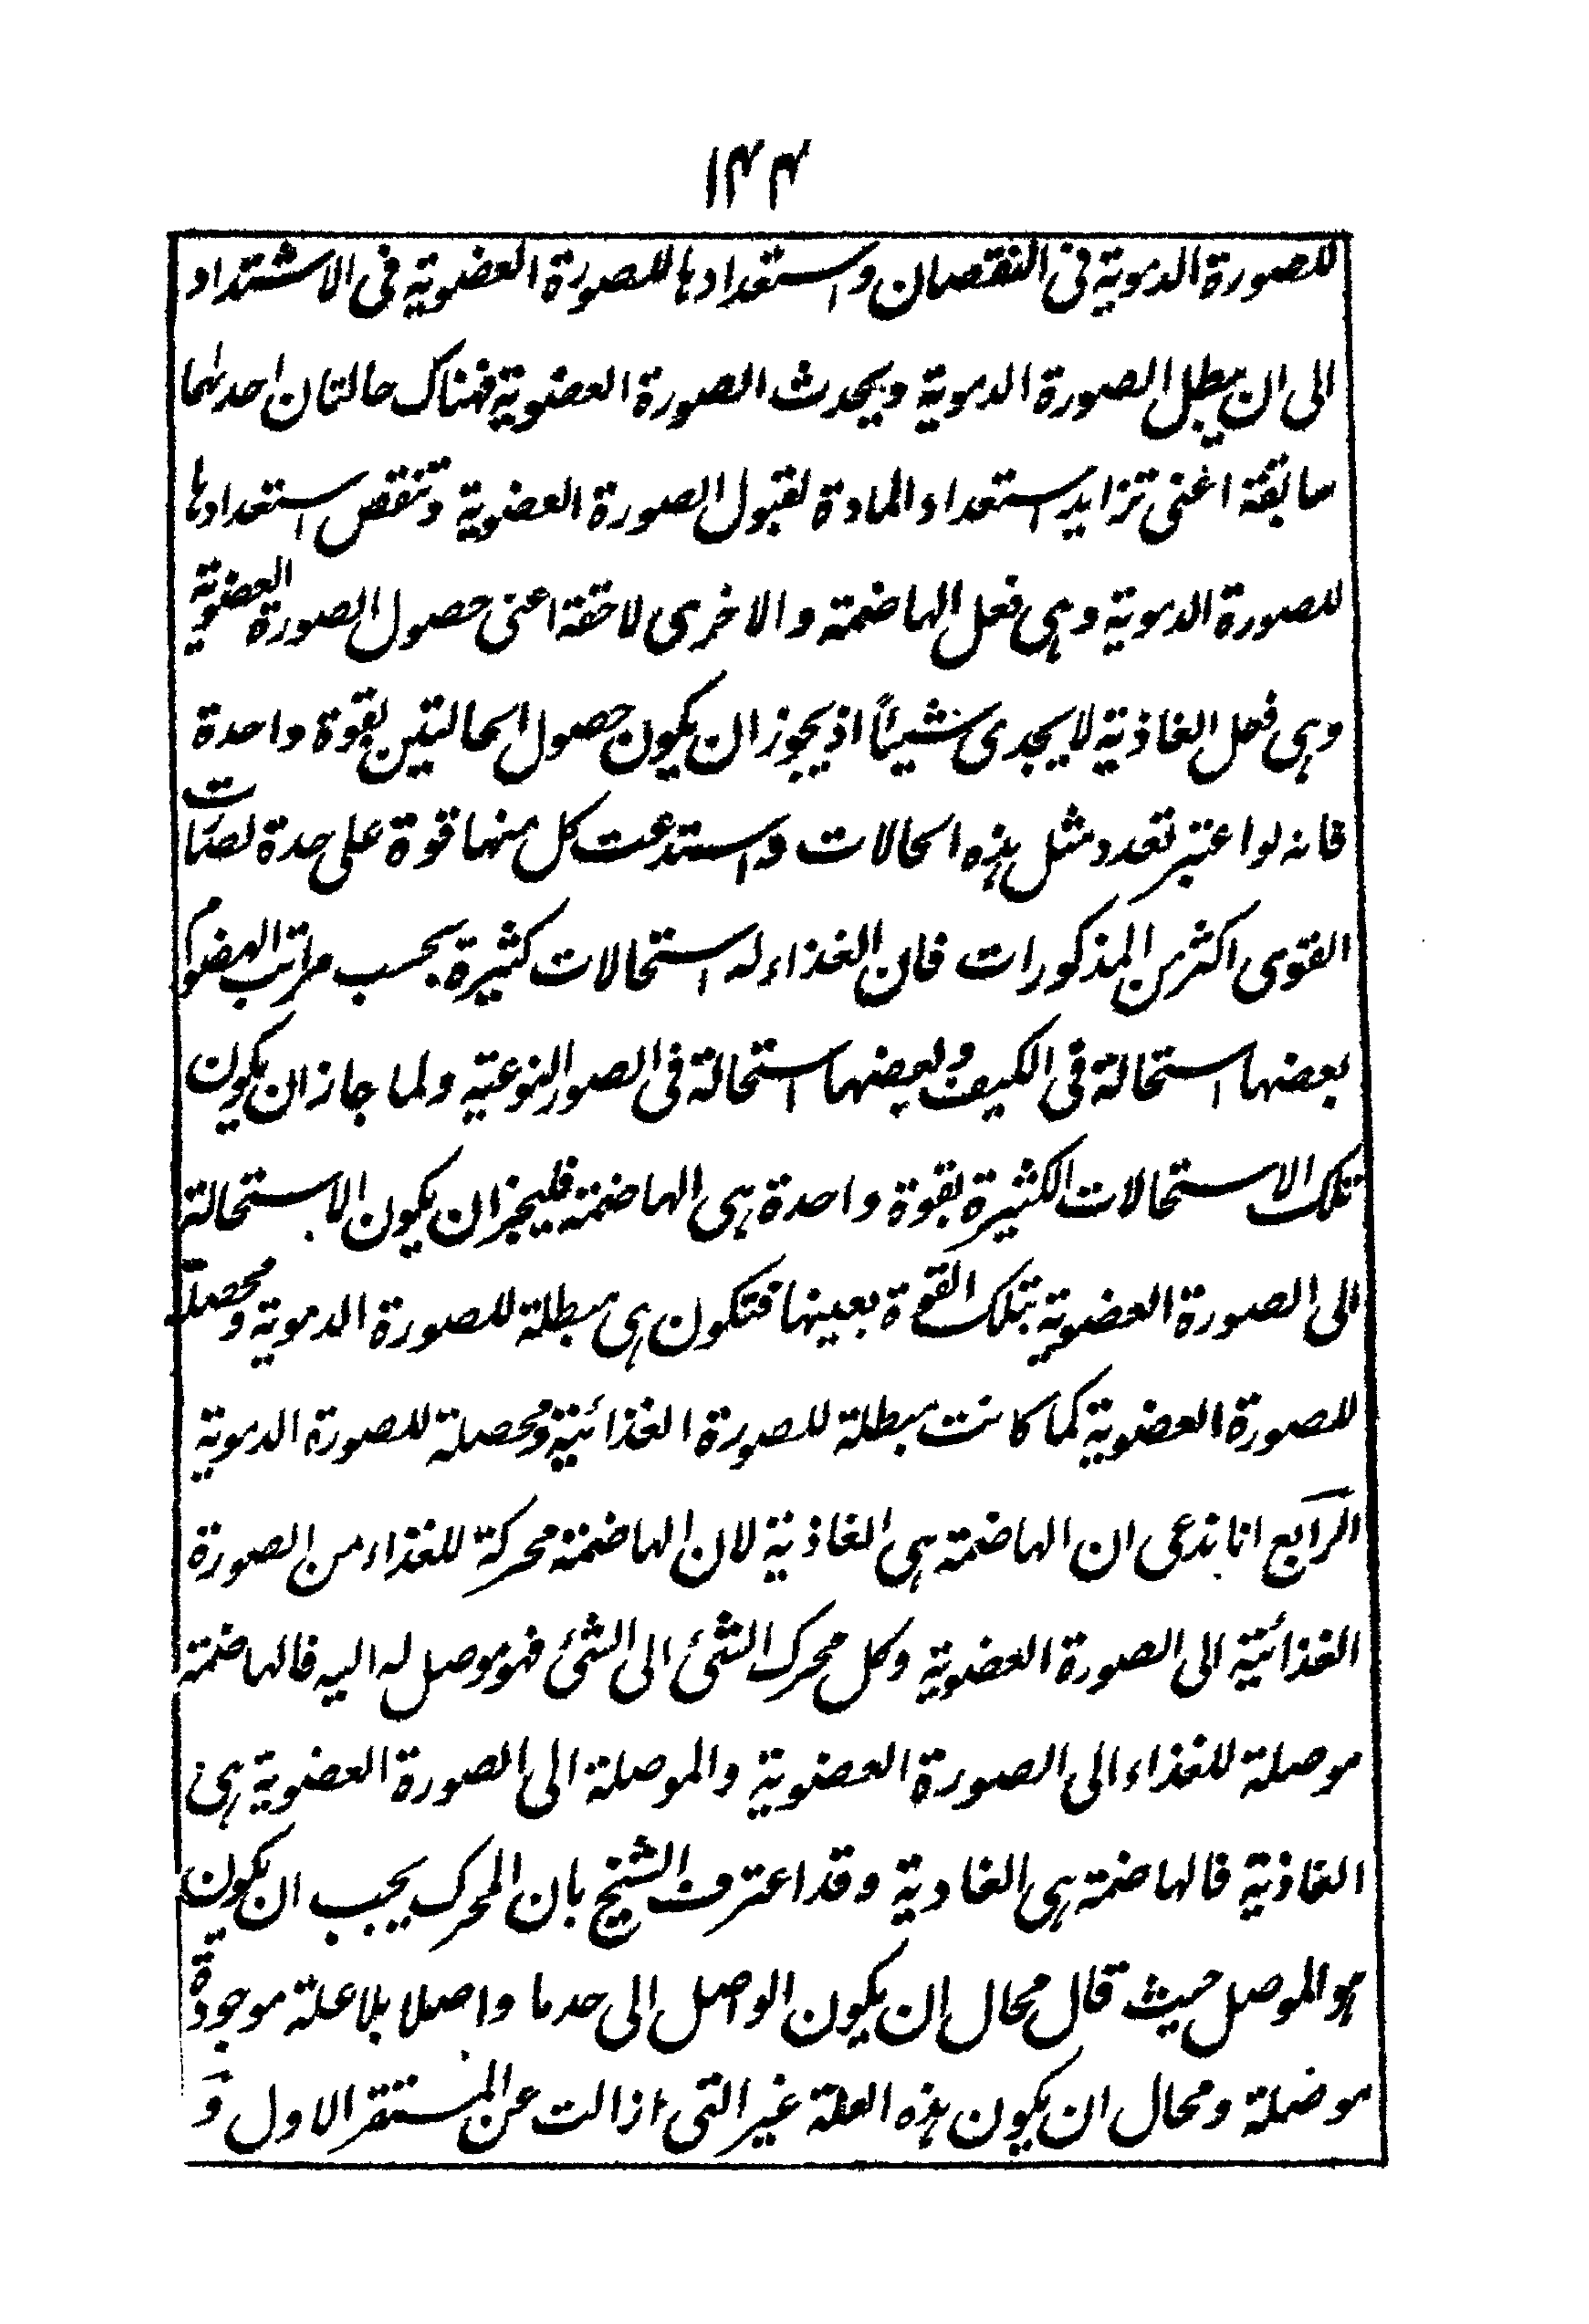 ١٤٤
للصورة الدموية فى النقصان واستعدادها للصورة العضوية فى الاشتداد
الى ان يبطل الصورة الدموية ويحدث الصورة العضوية فهناك حالتان احدىهما
سابقة اعنى تزايد استعداد المادة لقبول الصورة العضوية وتنقص استعدادها
للصورة الدموية وهى فعل الهاضمة والاخرى لاحقة اعنى حصول الصورة العضوية
وهى فعل الغاذية لا يجدى شيئاً اذ يجوز ان يكون حصول الحالتين بقوة واحدة
فانه لو اعتبر تعدد مثل هذه الحالات واستدعت كل منها قوة على حدة لصارت
القوى اكثر من المذكورات فان الغذاء له استحالات كثيرة بحسب مراتب الهضوم
بعضها استحالة فى الكيف وبعضها استحالة فى الصور النوعية ولما جاز ان يكون
تلك الاستحالات الكثيرة بقوة واحدة هى الهاضمة فليجز ان يكون الاستحالة
الى الصورة العضوية بتلك القوة بعينها فتكون هى مبطلة للصورة الدموية ومحصلة
للصورة العضوية كما كانت مبطلة للصورة الغذائية ومحصلة للصورة الدموية
الرابع انا ندعى ان الهاضمة هى الغاذية لان الهاضمة محركة للغذاء من الصورة
الغذائية الى الصورة العضوية وكل محرك الشئ الى الشئ فهو موصل له اليه فالهاضمة
موصلة للغذاء الى الصورة العضوية والموصلة الى الصورة العضوية هى
الغاذية فالهاضمة هى الغادية وقد اعترف الشيخ بان المحرك يجب ان يكون
هو الموصل حيث قال محال ان يكون الواصل الى حد ما واصلا بلا علة موجودة
موضلة ومحال ان يكون هذه العلة غير التى ازالت عن المستقر الاول و